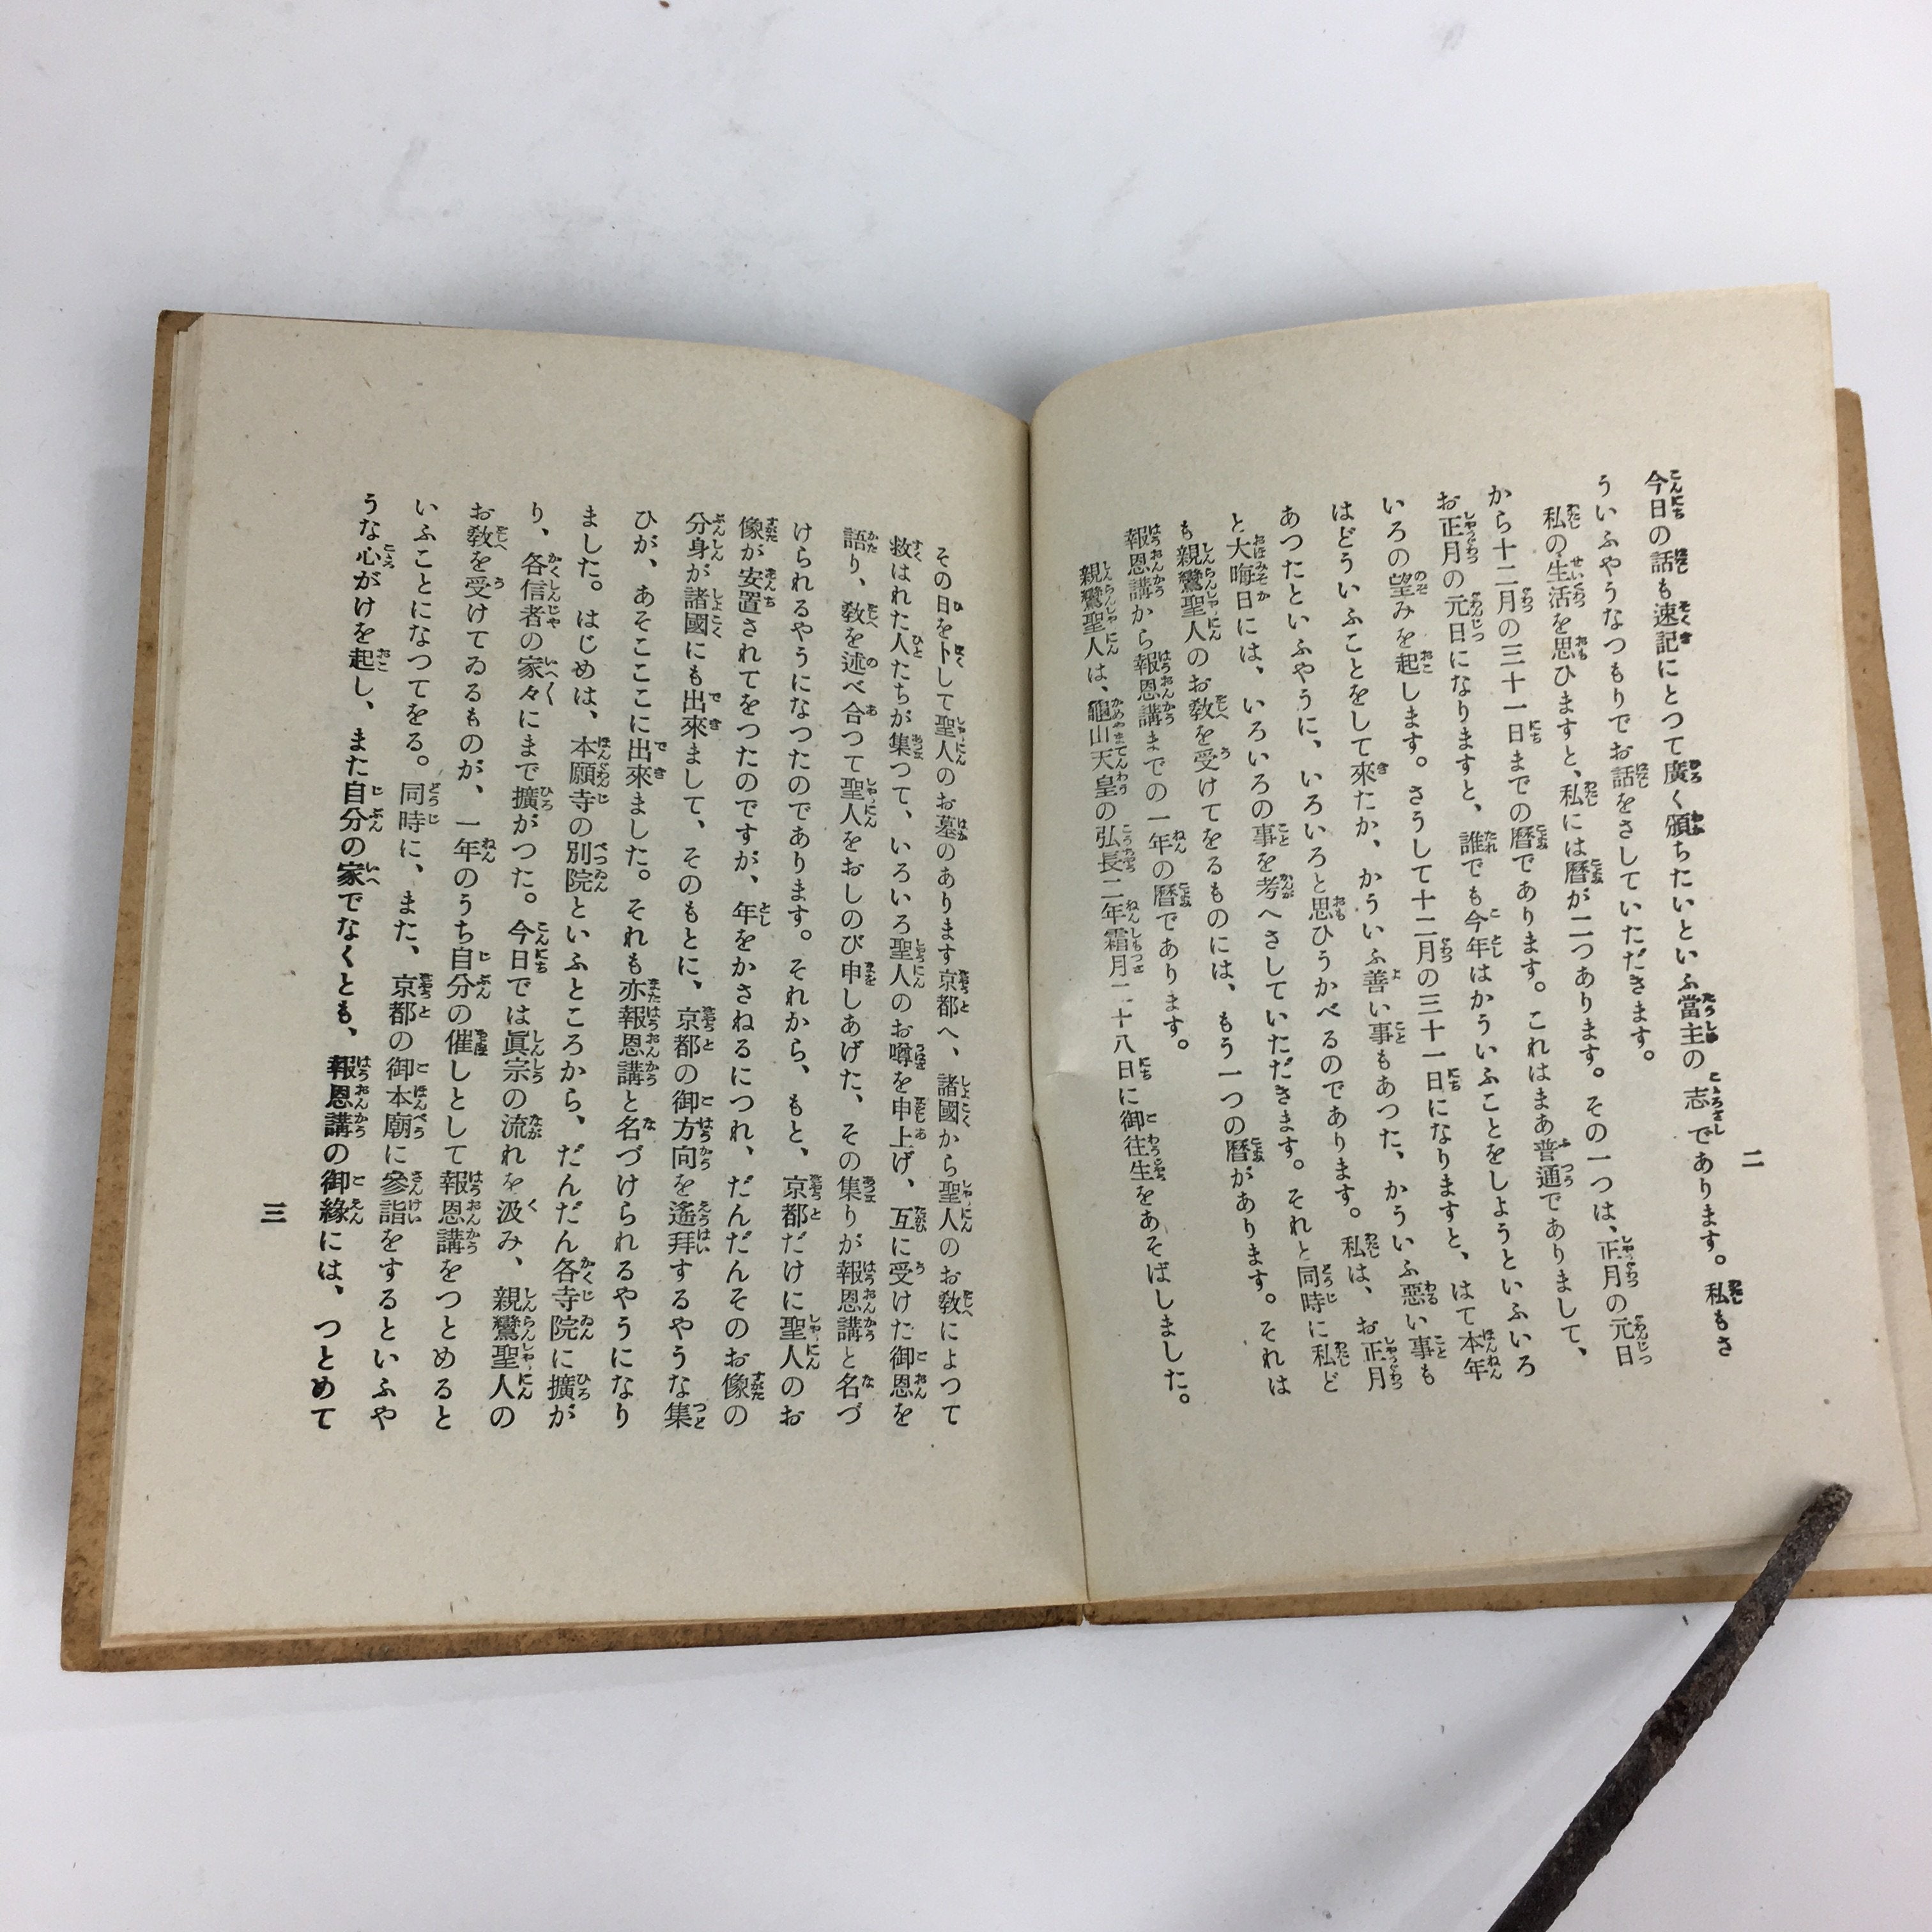 今日の話も速記にとつて廣く頒ちたいといふ當主の志であります。私もさ
ういふやうなつもりでお話をさしていただきます。
私の生活を思ひますと、私には暦が二つあります。その一つは、正月の元日
から十二月の三十一日までの暦であります。これはまあ普通でありまして、
お正月の元日になりますと、誰でも今年はかういふことをしようといふいろ
いろの望みを起します。さうして十二月の三十一日になりますと、はて本年
はどういふことをして來たか、かういふ善い事もあつた、かういふ惡い事も
あつたといふやうに、いろいろと思ひうかべるのであります。私は、お正月
と大晦日には、いろいろの事を考へさしていただきます。それと同時に私ど
も親鸞聖人のお敎を受けてをるものには、もう一つの暦があります。それは
報恩講から報恩講までの一年の暦であります。
親鸞聖人は、龜山天皇の弘長二年霜月二十八日に御往生をあそばしました。
二
その日を卜して聖人のお墓のあります京都へ、諸國から聖人のお敎によつて
救はれた人たちが集つて、いろいろ聖人のお噂を申上げ、互に受けた御恩を
語り、敎を述べ合つて聖人をおしのび申しあげた、その集りが報恩講と名づ
けられるやうになつたのであります。それから、もと、京都だけに聖人のお
像が安置されてをつたのですが、年をかさねるにつれ、だんだんそのお像の
分身が諸國にも出來まして、そのもとに、京都の御方向を遙拜するやうな集
ひが、あそこここに出來ました。それも亦報恩講と名づけられるやうになり
ました。はじめは、本願寺の別院といふところから、だんだん各寺院に擴が
り、各信者の家々にまで擴がつた。今日では眞宗の流れを汲み、親鸞聖人の
お敎を受けてゐるものが、一年のうち自分の催しとして報恩講をつとめると
いふことになつてをる。同時に、また、京都の御本廟に參詣をするといふや
うな心がけを起し、また自分の家でなくとも、報恩講の御緣には、つとめて
三